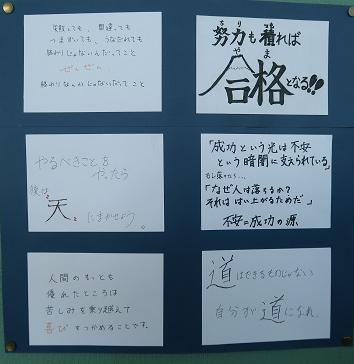 失敗しても、間違っても
つまずいても、うなだれても
終わりじゃないんだってこと
ぜんぜん
終わりなんかじゃないだってこと
努力も積れば
ちり
つも
やま
合格となる!!
やるべきことを
やったら
後は
天
にまかせよう。
「成功という光は不安
という暗闇に支えられている」
もし落ちたら…
「なぜ人は落ちるのか?
それははい上がるためだ」
不安=成功の源
人間のもっとも
優れたところは
苦しみを乗り越えて
喜びをつかめることです。
道はできるものじゃない
自分が道になれ。